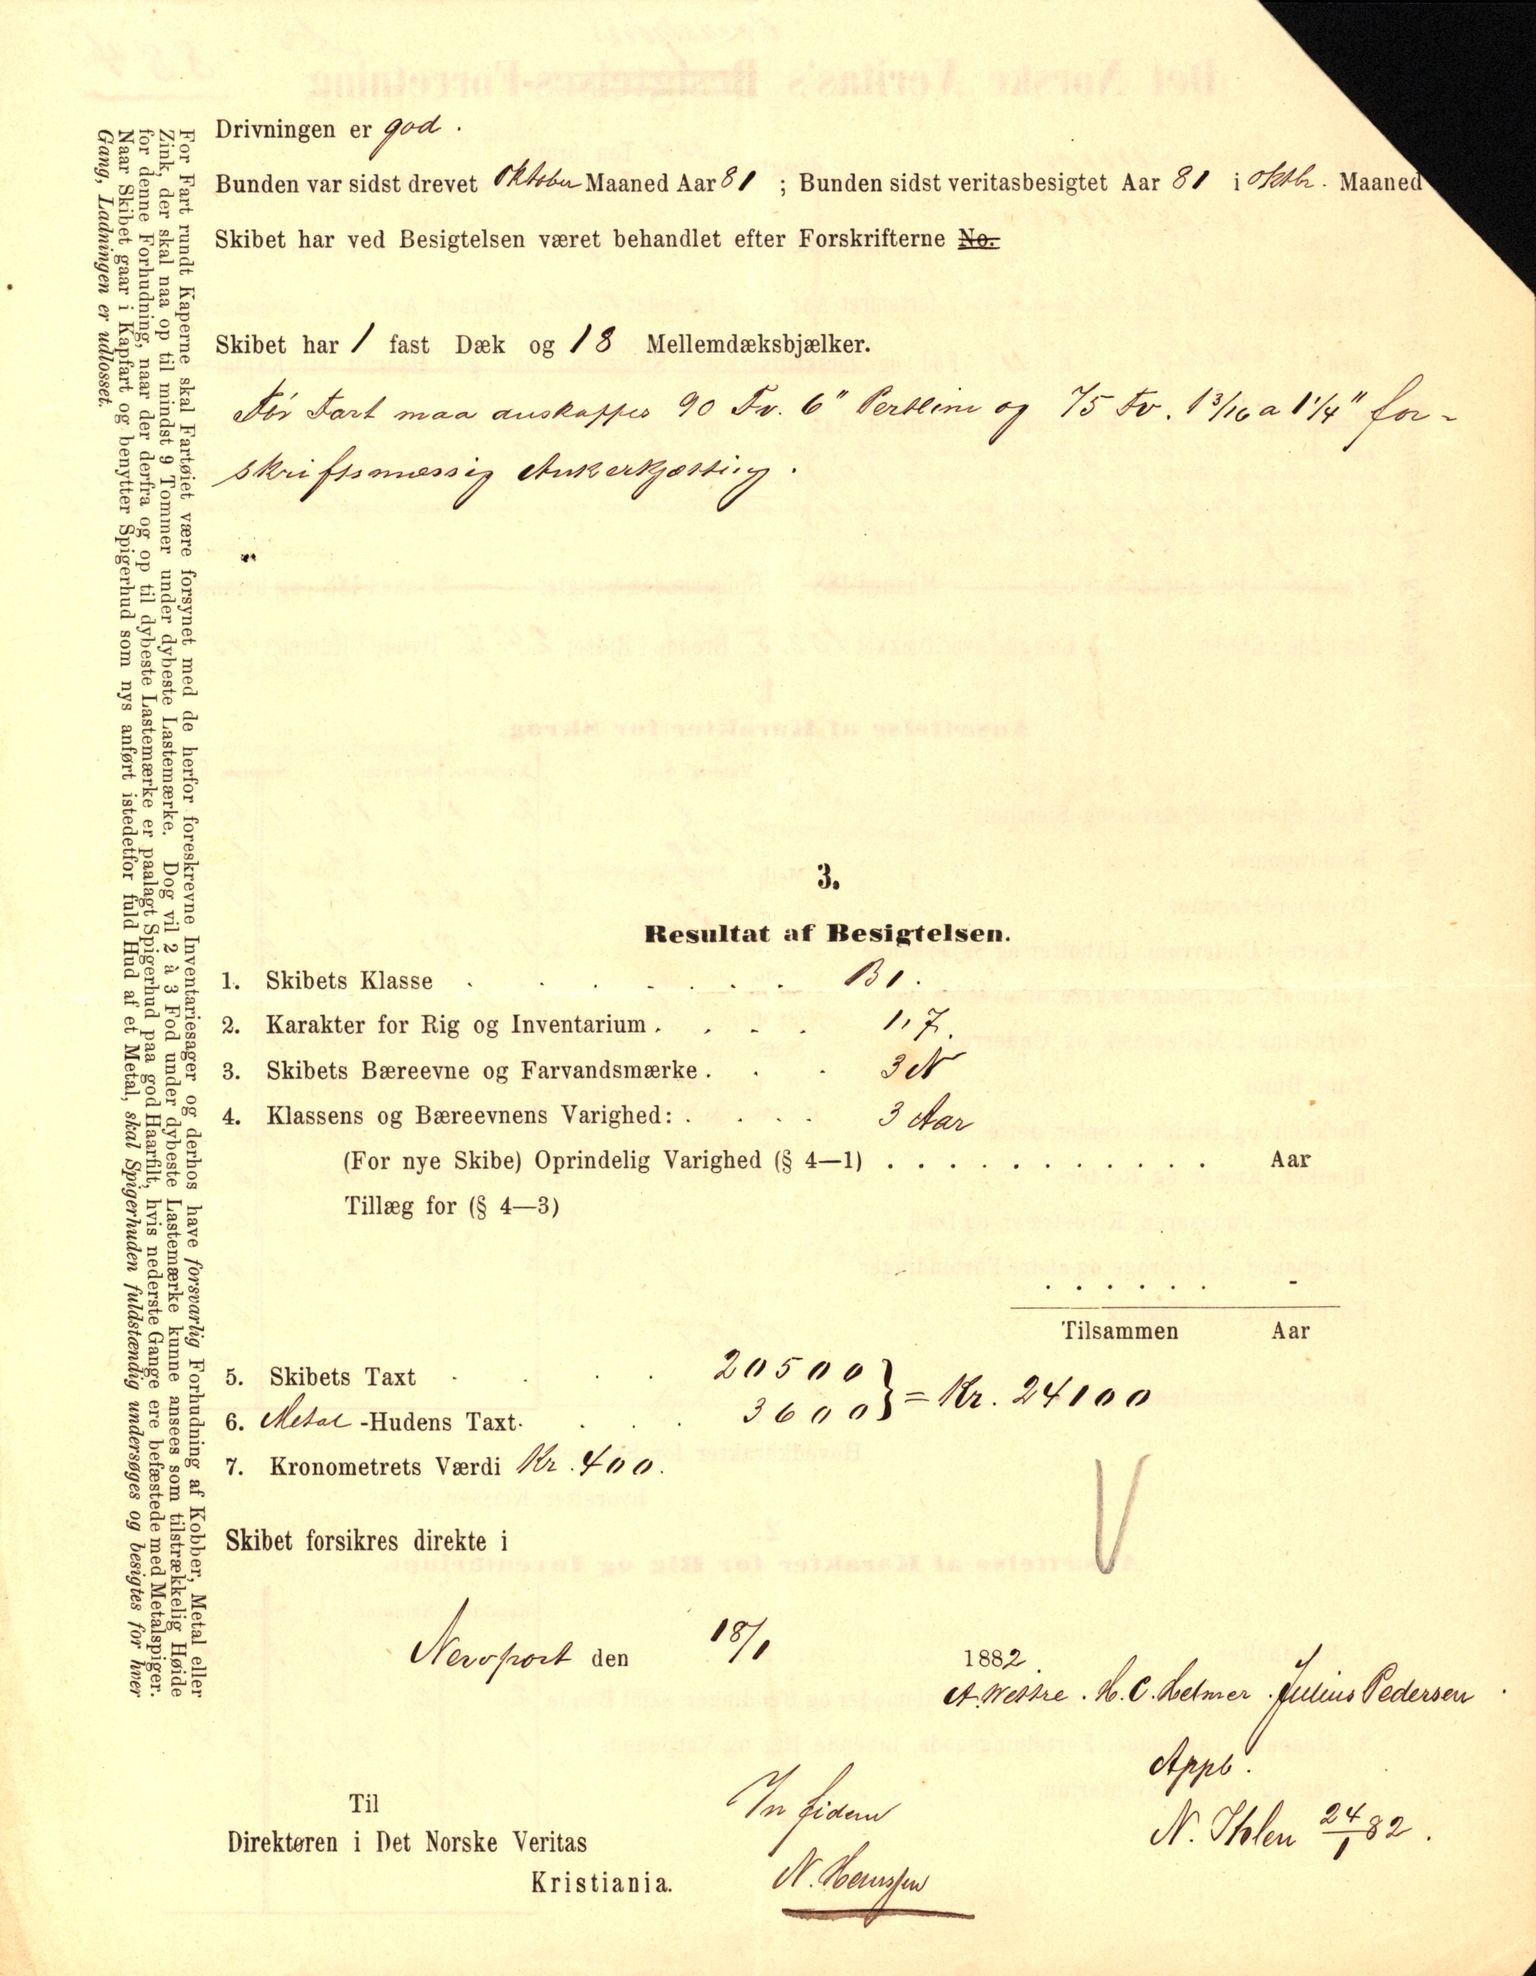 Drivningen er god.
Bunden var sidst drevet Oktober Maaned Aar 81 ; Bunden sidst veritasbesigtet Aar 81 i oktbr. Maaned
Skibet har ved Besigtelsen været behandlet efter Forskrifterne No.
Skibet har 1 fast Dæk og 18 Mellemdæksbjælker.
Før Fart maa anskaffes 90 Fv. 6" Pertline og 75 Fv. 1 3/16 a 1 1/4" for-
skriftsmæssig Ankerkjætting.
3.
Resultat af Besigtelsen.
1. Skibets Klasse . . . . . . . B 1.
2. Karakter for Rig og Inventarium . . . . 1,7.
3. Skibets Bæreevne og Farvandsmærke . . . 3 N
4. Klassens og Bæreevnens Varighed: . . . . 3 Aar
(For nye Skibe) Oprindelig Varighed (§ 4—1) . . . . . . . . . . . Aar
Tillæg for (§ 4—3)
. . . . . . -
Tilsammen Aar
5. Skibets Taxt . . . . 20500
6. Metal -Hudens Taxt . . . . 3600 } = Kr. 24100
7. Kronometrets Værdi Kr. 400.
Skibet forsikres direkte i
V
Newport den 18/1 1882.
A. Westre. H. C. Helmer. Julius Pedersen
Appb.
N. Ihlen 24/1 82.
In fidem
N. Henssen
Til
Direktøren i Det Norske Veritas
Kristiania.
For Fart rundt Kaperne skal Fartøiet være forsynet med de herfor foreskrevne Inventariesager og derhos have forsvarlig Forhudning af Kobber, Metal eller
Zink, der skal naa op til mindst 9 Tommer under dybeste Lastemærke. Dog vil 2 à 3 Fod under dybeste Lastemærke kunne ansees som tilstrækkelig Høide
for denne Forhudning, naar der derfra og op til dybeste Lastemærke er paalagt Spigerhud paa god Haarfilt, hvis nederste Gange ere befæstede med Metalspiger.
Naar Skibet gaar i Kapfart og benytter Spigerhud som nys anført istedetfor fuld Hud af et Metal, skal Spigerhuden fuldstændig undersøges og besigtes for hver
Gang, Ladningen er udlosset.